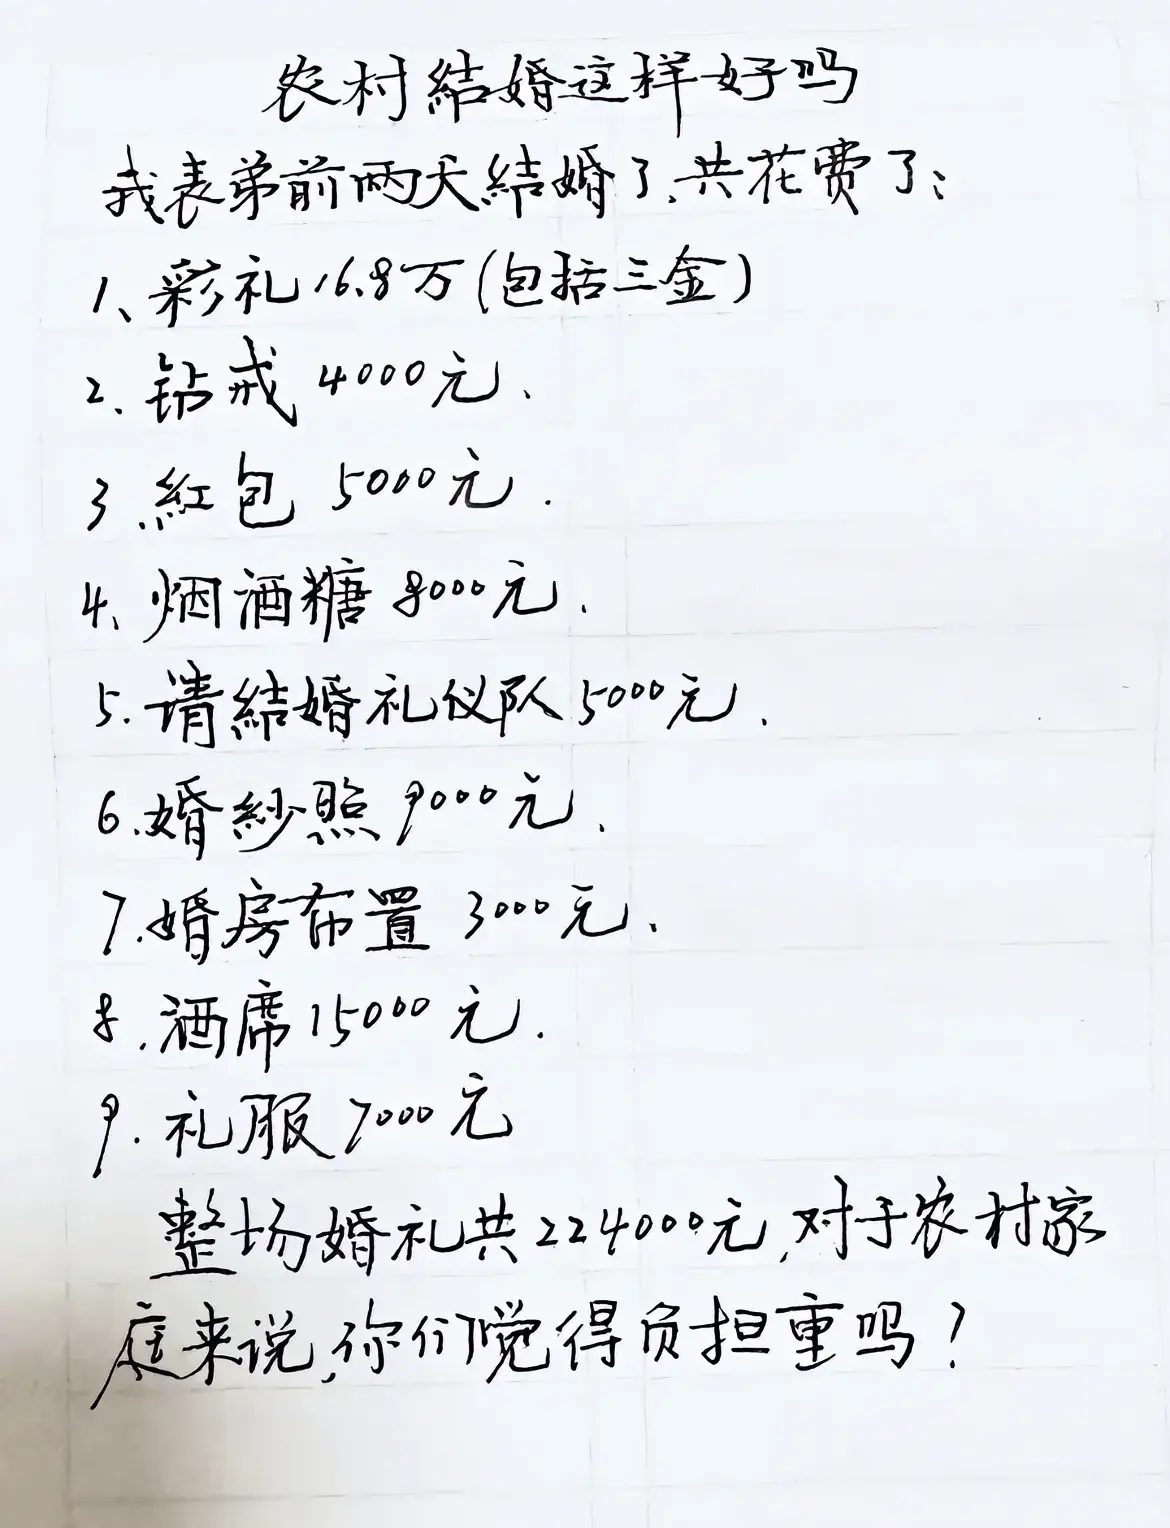 农村結婚这样好吗
我表弟前两天結婚了,共花费了:
1、彩礼16.8万(包括三金)
2、钻戒 4000元、
3、紅包 5000元.
4、烟酒糖 8000元、
5.请結婚礼仪队5000元、
6.婚紗照9000元、
7.婚房布置 3000元、
8.酒席15000元.
9.礼服7000元
整场婚礼共224000元,对于农村家
庭来说,你们觉得负担重吗?